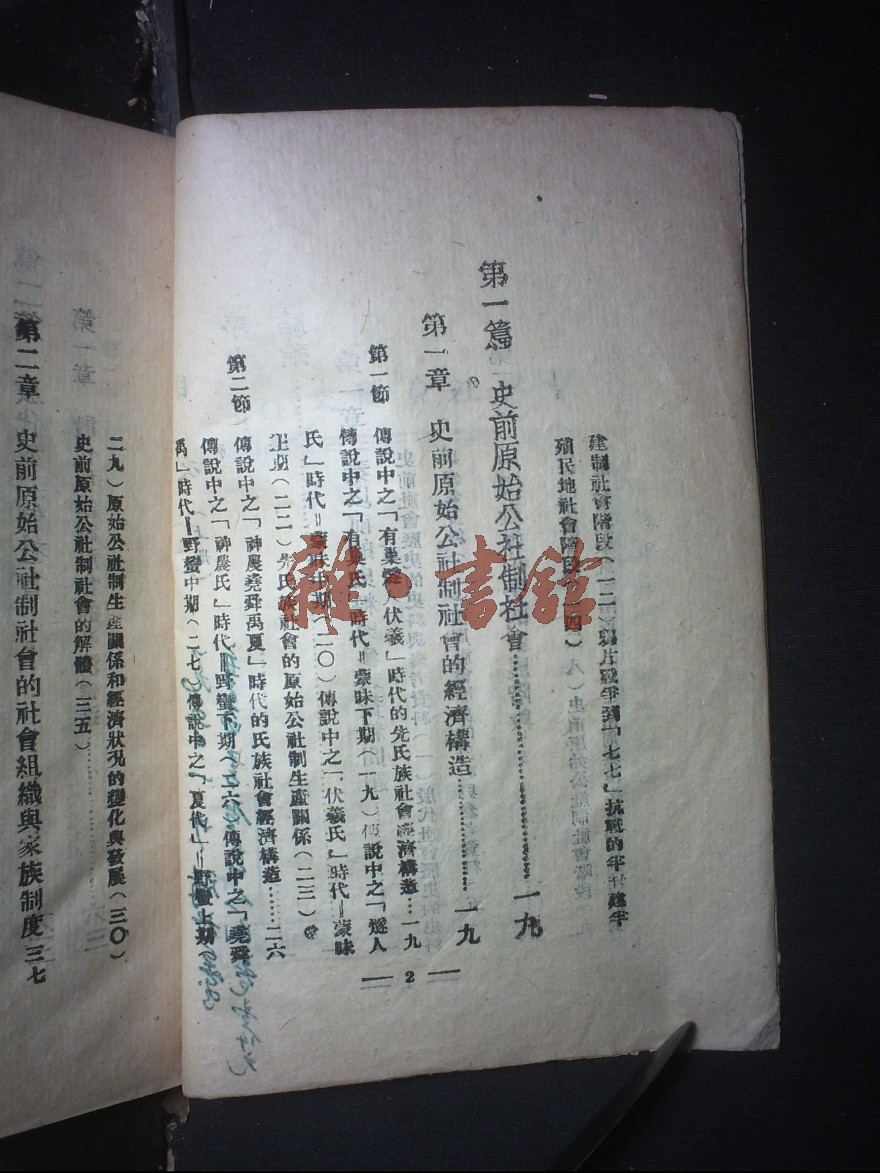 建制社會階段(一二)鴉片戰爭到「七七」抗戰的半封建半
殖民地社會階段(一四
第一篇 史前原始公社制社會……一九
第一章 史前原始公社制社會的經濟構造……一九
第一節 傳說中之「有巢 伏羲」時代的先氏族社會經濟構造……一九
傳說中之「有巢氏」時代=蒙昧下期(一九)傳說中之「燧人
氏」時代=蒙昧中期(二〇)傳說中之「伏羲氏」時代=蒙昧
上期(二二)先氏族社會的原始公社制生產關係(二三)
第二節 傳說中之「神農堯舜禹夏」時代的氏族社會經濟構造……二六
傳說中之「神農氏」時代=野蠻下期(二六)傳說中之「堯舜
禹」時代=野蠻中期(二七)傳說中之「夏代」=野蠻上期
2
二九)原始公社制生產關係和經濟狀況的變化與發展(三〇)
史前原始公社制社會的解體(三五)……
第二章 史前原始公社制社會的社會組織與家族制度 三七
雜·書館